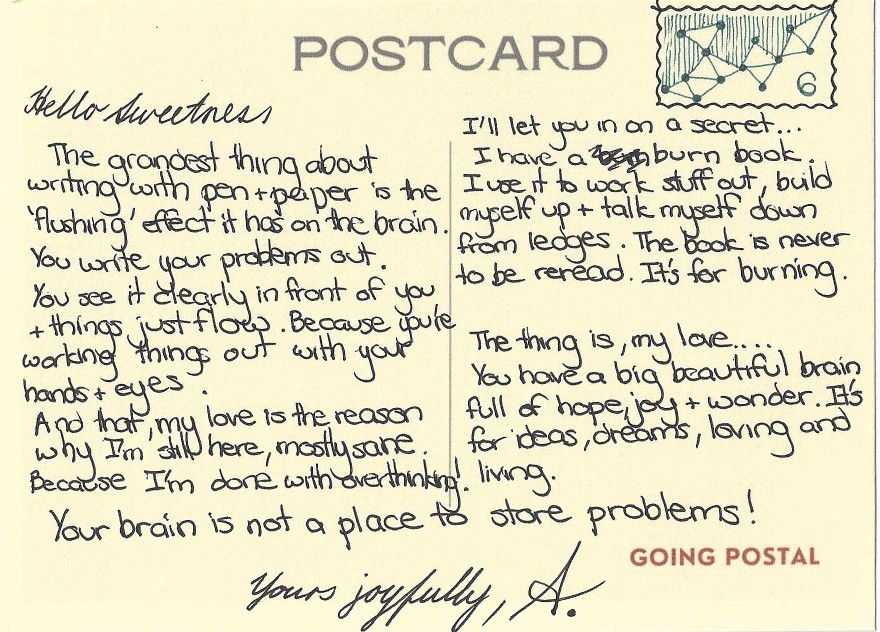 POSTCARD
6
Hello Sweetness
The grandest thing about
writing with pen + paper is the
'flushing' effect it has on the brain.
You write your problems out.
You see it clearly in front of you
+ things just flow. Because you're
working things out with your
hands + eyes.
And that, my love is the reason
why I'm still here, mostly sane.
Because I'm done with overthinking!
I'll let you in on a secret...
I have a burn book.
I use it to work stuff out, build
myself up + talk myself down
from ledges. The book is never
to be reread. It's for burning.
The thing is, my love....
You have a big beautiful brain
full of hope, joy + wonder. It's
for ideas, dreams, loving and
living.
Your brain is not a place to store problems!
GOING POSTAL
Yours joyfully, A.